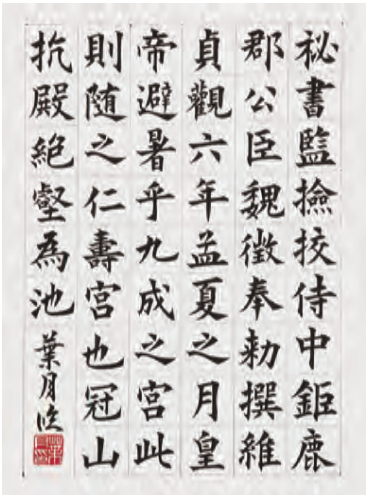 秘書監撿挍侍中鉅鹿
郡公臣魏徵奉勑撰維
貞觀六年孟夏之月皇
帝避暑乎九成之宮此
則随之仁壽宮也冠山
抗殿絕壑為池
葉月